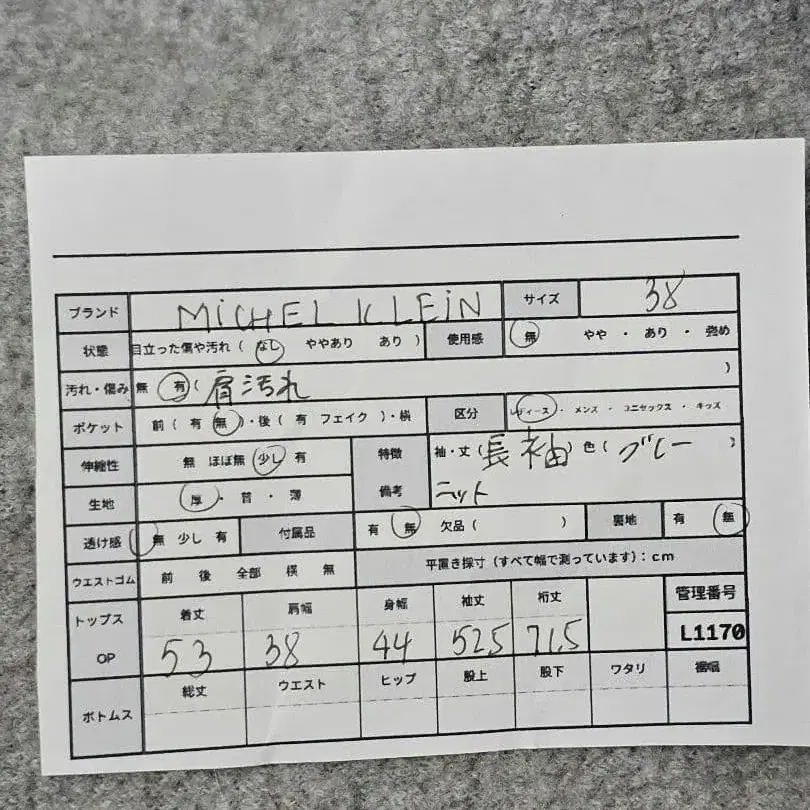 ブランド MiCHEL KLEiN サイズ 38
状態 目立った傷や汚れ ( なし ややあり あり ) 使用感 無 やや ・ あり ・ 強め
汚れ・傷み 無 有 ( 肩汚れ )
ポケット 前 ( 有 無 )・後 ( 有 フェイク )・横 区分 レディース ・ メンズ ・ ユニセックス ・ キッズ
伸縮性 無 ほぼ無 少し 有 特徴 袖・丈 ( 長袖 ) 色 ( グレー )
生地 厚 ・ 普 ・ 薄 備考 ニット
透け感 無 少し 有 付属品 有 無 欠品 ( ) 裏地 有 無
ウエストゴム 前 後 全部 横 無 平置き採寸 (すべて幅で測っています) : cm
トップス 着丈 肩幅 身幅 袖丈 裄丈 管理番号
OP 53 38 44 52.5 71.5 L1170
ボトムス 総丈 ウエスト ヒップ 股上 股下 ワタリ 裾幅